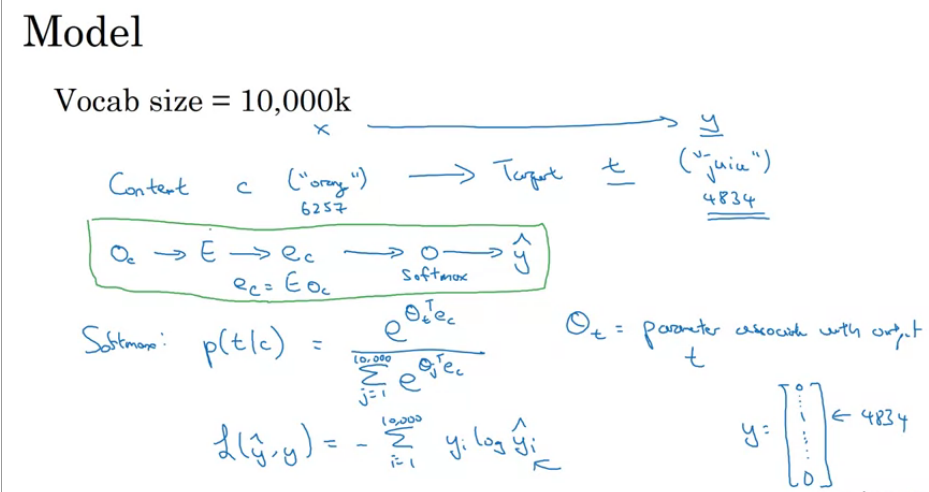 Model
Vocab size = 10,000k
x → y
Context c ("orange") → Target t ("juice")
6257 4834
O_c → E → e_c → O → ŷ
Softmax
e_c = E O_c
Softmax: p(t|c) = e^{θ_t^T e_c} / Σ_{j=1}^{10,000} e^{θ_j^T e_c}
θ_t = parameter associated with output
t
L(ŷ, y) = - Σ_{i=1}^{10,000} y_i log ŷ_i
y = [0 ⋮ 1 ⋮ 0] ← 4834